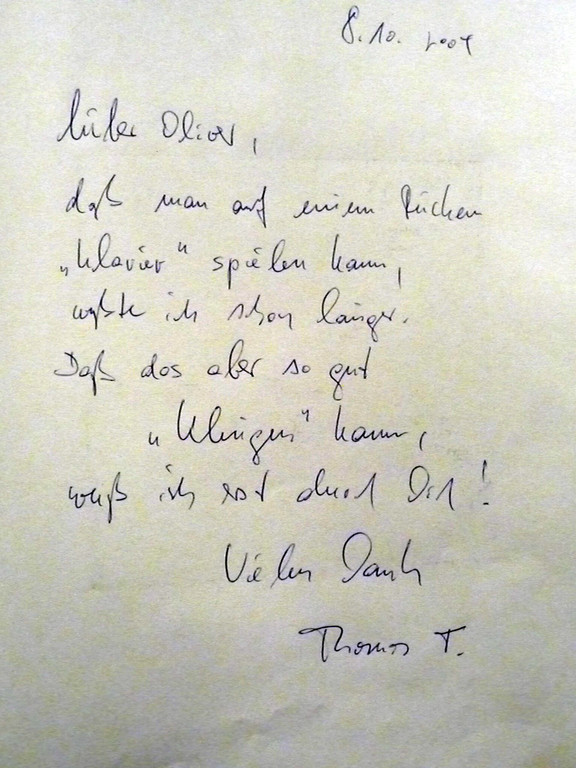 8.10. 2004
Lieber Oliver,
daß man auf einem Rücken
„Klavier“ spielen kann,
wußte ich schon länger.
Daß das aber so gut
„Klingen“ kann,
weiß ich erst durch Dich!
Vielen Dank
Thomas T.